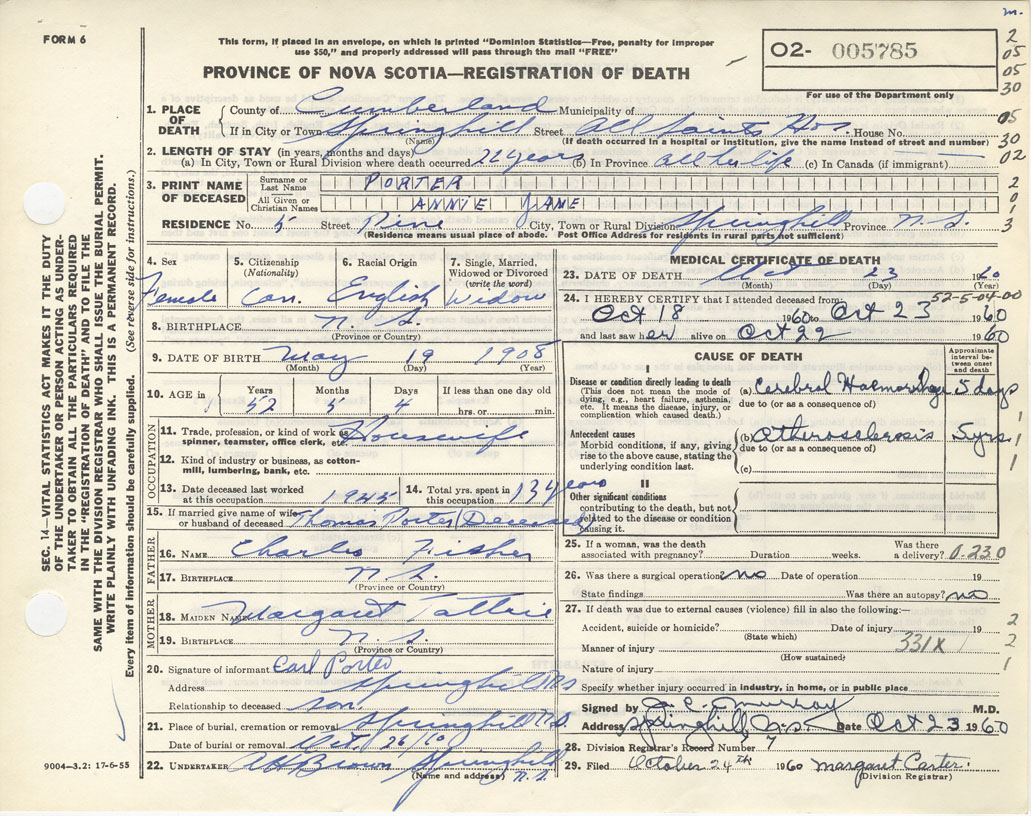 m.
FORM 6
This form, if placed in an envelope, on which is printed "Dominion Statistics—Free, penalty for improper
use $50," and properly addressed will pass through the mail "FREE"
O2- 005785
For use of the Department only
PROVINCE OF NOVA SCOTIA—REGISTRATION OF DEATH
2
05
05
30
05
30
02
2
0
1
3
1. PLACE OF DEATH County of Cumberland Municipality of
If in City or Town Springhill Street All Saints Hos. House No.
(Name) (If death occurred in a hospital or institution, give the name instead of street and number)
2. LENGTH OF STAY (in years, months and days)
(a) In City, Town or Rural Division where death occurred 22 years (b) In Province all her life (c) In Canada (if immigrant)
3. PRINT NAME OF DECEASED Surname or Last Name PORTER
All Given or Christian Names ANNIE JANE
RESIDENCE No. 5 Street Pine City, Town or Rural Division Springhill Province N.S.
(Residence means usual place of abode. Post Office Address for residents in rural parts not sufficient)
SEC. 14—VITAL STATISTICS ACT MAKES IT THE DUTY
OF THE UNDERTAKER OR PERSON ACTING AS UNDER-
TAKER TO OBTAIN ALL THE PARTICULARS REQUIRED
IN THE "REGISTRATION OF DEATH" AND TO FILE THE
SAME WITH THE DIVISION REGISTRAR WHO SHALL ISSUE THE BURIAL PERMIT.
WRITE PLAINLY WITH UNFADING INK. THIS IS A PERMANENT RECORD.
Every item of information should be carefully supplied. (See reverse side for instructions.)
4. Sex 5. Citizenship (Nationality) 6. Racial Origin 7. Single, Married, Widowed or Divorced (write the word)
Female Can. English Widow
8. BIRTHPLACE N.S.
(Province or Country)
9. DATE OF BIRTH May 19 1908
(Month) (Day) (Year)
10. AGE in Years Months Days If less than one day old
52 5 4 hrs. or min.
OCCUPATION
11. Trade, profession, or kind of work as spinner, teamster, office clerk, etc. Housewife
12. Kind of industry or business, as cotton-mill, lumbering, bank, etc.
13. Date deceased last worked at this occupation 1945 14. Total yrs. spent in this occupation 13 years
15. If married give name of wife or husband of deceased Thomas Porter (Deceased)
FATHER
16. NAME Charles Fisher
17. BIRTHPLACE N.S.
(Province or Country)
MOTHER
18. MAIDEN NAME Margaret Tattrie
19. BIRTHPLACE N.S.
(Province or Country)
20. Signature of informant Earl Porter
Address Springhill N.S
Relationship to deceased son.
21. Place of burial, cremation or removal Springhill N.S.
Date of burial or removal Oct. 26/60
22. UNDERTAKER AH Brown Springhill N.S.
(Name and address)
9004—3.2: 17-6-55
MEDICAL CERTIFICATE OF DEATH
23. DATE OF DEATH Oct 23 1960
(Month) (Day)
24. I HEREBY CERTIFY that I attended deceased from: 52-5-04-00
Oct 18 1960 to Oct 23 1960
and last saw her alive on Oct 22 1960
CAUSE OF DEATH
Approximate interval between onset and death
I
Disease or condition directly leading to death
(This does not mean the mode of dying, e.g., heart failure, asthenia, etc. It means the disease, injury, or complication which caused death.)
(a) Cerebral Haemorrhage 5 days
due to (or as a consequence of)
Antecedent causes
Morbid conditions, if any, giving rise to the above cause, stating the underlying condition last.
(b) Atherosclerosis 5 yrs
due to (or as a consequence of)
(c)
1
1
1
II
Other significant conditions
contributing to the death, but not related to the disease or condition causing it.
25. If a woman, was the death associated with pregnancy? Duration weeks. Was there a delivery? 0.230
26. Was there a surgical operation? no Date of operation 19
State findings Was there an autopsy? no
27. If death was due to external causes (violence) fill in also the following:—
Accident, suicide or homicide? Date of injury 19
(State which)
Manner of injury 331X
(How sustained)
Nature of injury
2
2
1
Specify whether injury occurred in industry, in home, or in public place
Signed by J. C. Murray M.D.
Address Springhill N.S. Date Oct 23 1960
28. Division Registrar's Record Number 7
29. Filed October 24th 1960 Margaret Carter.
(Division Registrar)